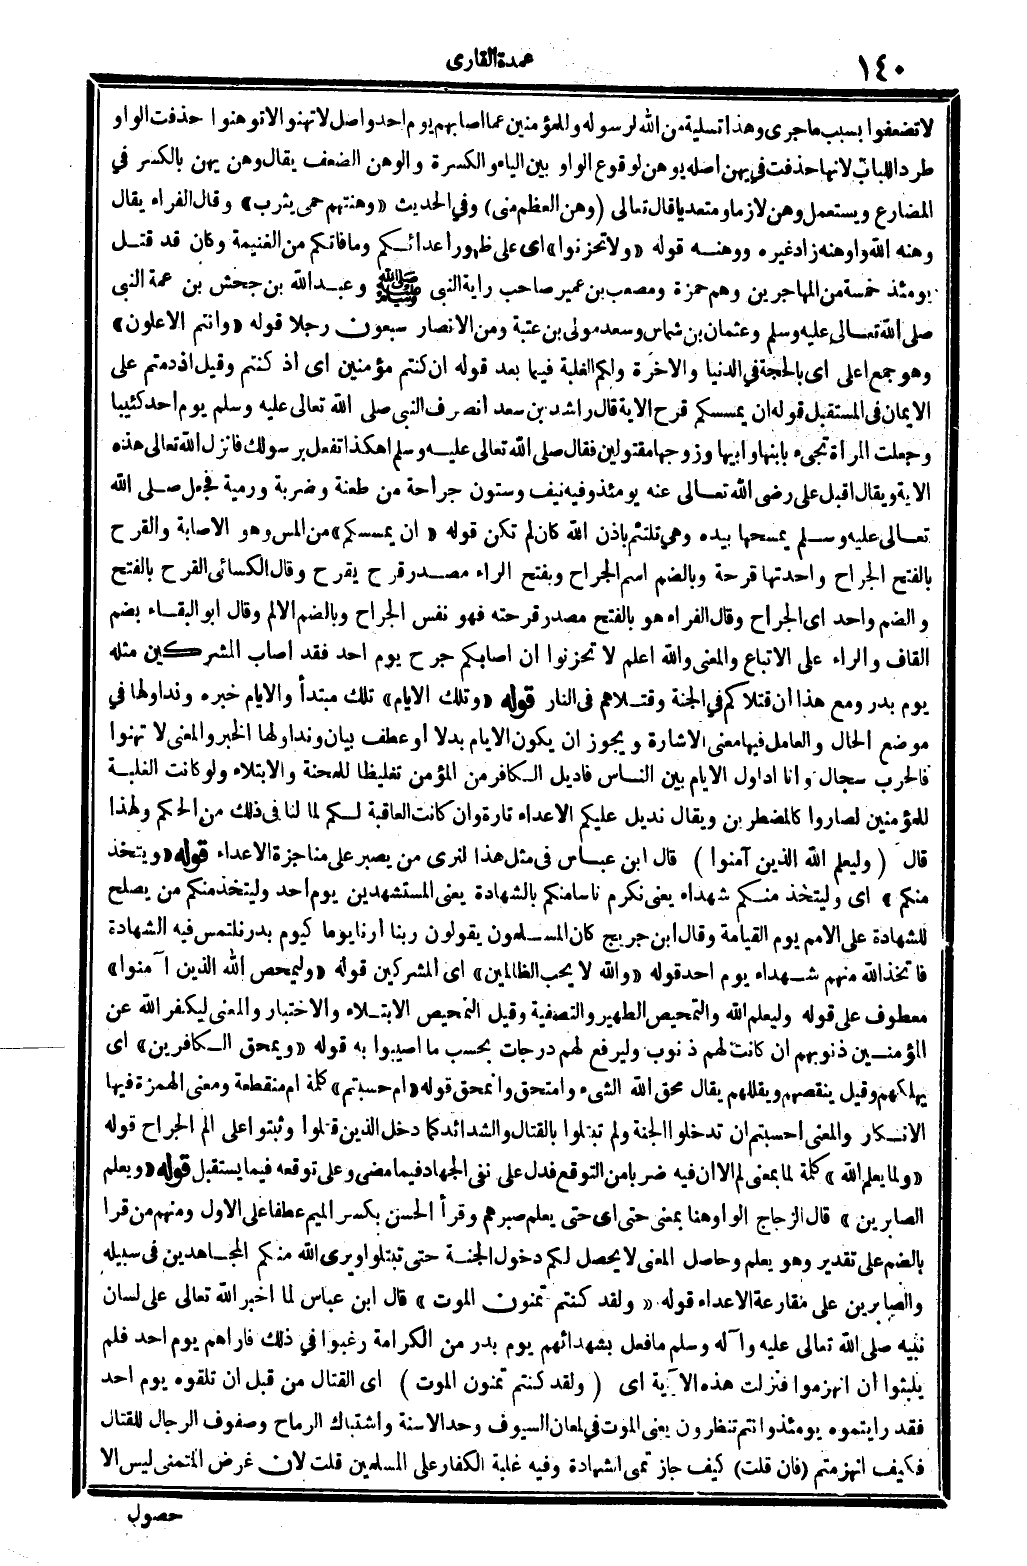 ١٤٠
عمدة القارى
لا تضعفوا بسبب ما جرى وهذا تسلية من الله لرسوله وللمؤمنين عما اصابهم يوم احد واصل لا تهنوا لا توهنوا حذفت الواو
طردا للباب لانها حذفت في يهن اصله يوهن لوقوع الواو بين الياء والكسرة والوهن الضعف يقال وهن يهن بالكسر في
المضارع ويستعمل وهن لازما ومتعديا قال تعالى (وهن العظم منى) وفي الحديث «وهنتهم حمى يثرب» وقال الفراء يقال
وهنه الله واوهنه زاد غيره ووهنه قوله «ولا تحزنوا» اى على ظهور اعدائكم وما فاتكم من الغنيمة وكان قد قتل
يومئذ خمسة من المهاجرين وهم حمزة ومصعب بن عمير صاحب راية النبى ﷺ وعبد الله بن جحش بن عمة النبى
صلى الله تعالى عليه وسلم وعثمان بن شماس وسعد مولى بن عتبة ومن الانصار سبعون رجلا قوله «وانتم الاعلون»
وهو جمع اعلى اى بالحجة في الدنيا والاخرة ولكم الغلبة فيما بعد قوله ان كنتم مؤمنين اى اذ كنتم وقيل اذ دمتم على
الايمان فى المستقبل قوله ان يمسسكم قرح الاية قال راشد بن سعد انصرف النبى صلى الله تعالى عليه وسلم يوم احد كئيبا
وجعلت المرأة تجىء بابنها وابيها وزوجها مقتولين فقال صلى الله تعالى عليه وسلم اهكذا تفعل برسولك فانزل الله تعالى هذه
الاية ويقال اقبل على رضى الله تعالى عنه يومئذ وفيه نيف وستون جراحة من طعنة وضربة ورمية فجعل صلى الله
تعالى عليه وسلم يمسحها بيده وهى تلتئم باذن الله كان لم تكن قوله «ان يمسسكم» من المس وهو الاصابة والقرح
بالفتح الجراح واحدتها قرحة وبالضم اسم الجراح وبفتح الراء مصدر قرح يقرح وقال الكسائى القرح بالفتح
والضم واحد اى الجراح وقال الفراء هو بالفتح مصدر قرحته فهو نفس الجراح وبالضم الالم وقال ابو البقاء بضم
القاف والراء على الاتباع والمعنى والله اعلم لا تحزنوا ان اصابكم جرح يوم احد فقد أصاب المشركين مثله
يوم بدر ومع هذا ان قتلاكم في الجنة وقتلاهم فى النار قوله «وتلك الايام» تلك مبتدأ والايام خبره ونداولها في
موضع الحال والعامل فيها معنى الاشارة ويجوز ان يكون الايام بدلا أو عطف بيان ونداولها الخبر والمعنى لا تهنوا
فالحرب سجال وانا اداول الايام بين الناس فاديل الكافر من المؤمن تغليظا للمحنة والابتلاء ولو كانت الغلبة
للمؤمنين لصاروا كالمضطرين ويقال نديل عليكم الاعداء تارة وان كانت العاقبة لكم لما لنا فى ذلك من الحكم ولهذا
قال (وليعلم الله الذين آمنوا) قال ابن عباس فى مثل هذا لنرى من يصبر على مناجزة الاعداء قوله «ويتخذ
منكم» اى وليتخذ منكم شهداء يعنى نكرم ناسا منكم بالشهادة يعنى المستشهدين يوم احد وليتخذ منكم من يصلح
للشهادة على الامم يوم القيامة وقال ابن جريج كان المسلمون يقولون ربنا أرنا يوما كيوم بدر نلتمس فيه الشهادة
فاتخذ الله منهم شهداء يوم احد قوله «والله لا يحب الظالمين» اى المشركين قوله «وليمحص الله الذين آمنوا»
معطوف على قوله وليعلم الله والتمحيص الطهير والتصفية وقيل التمحيص الابتلاء والاختبار والمعنى ليكفر الله عن
المؤمنين ذنوبهم ان كانت لهم ذنوب وليرفع لهم درجات بحسب ما اصيبوا به قوله «ويمحق الكافرين» اى
يهلكهم وقيل ينقصهم ويقللهم يقال محق الله الشىء وامتحق وانمحق قوله «ام حسبتم» كلمة ام منقطعة ومعنى الهمزة فيها
الانكار والمعنى احسبتم ان تدخلوا الجنة ولم تبتلوا بالقتال والشدائد كما دخل الذين قتلوا وثبتوا على الم الجراح قوله
«ولما يعلم الله» كلمة لما بمعنى لم الا ان فيه ضربا من التوقع فدل على نفى الجهاد فيما مضى وعلى توقعه فيما يستقبل قوله «ويعلم
الصابرين» قال الزجاج الواو هنا بمعنى حتى اى حتى يعلم صبرهم وقرأ الحسن بكسر الميم عطفا على الاول ومنهم من قرا
بالضم على تقدير وهو يعلم وحاصل المعنى لا يحصل لكم دخول الجنة حتى تبتلوا ويرى الله منكم المجاهدين فى سبيله
والصابرين على مقارعة الاعداء قوله «ولقد كنتم تمنون الموت» قال ابن عباس لما اخبر الله تعالى على لسان
نبيه صلى الله تعالى عليه وآله وسلم ما فعل بشهدائهم يوم بدر من الكرامة رغبوا في ذلك فاراهم يوم احد فلم
يلبثوا أن انهزموا فنزلت هذه الآية اى (ولقد كنتم تمنون الموت) اى القتال من قبل ان تلقوه يوم احد
فقد رايتموه يومئذ وانتم تنظرون يعنى الموت في لمعان السيوف وحد الاسنة واشتباك الرماح وصفوف الرجال للقتال
فكيف انهزمتم (فان قلت) كيف جاز تمنى الشهادة وفيه غلبة الكفار على المسلمين قلت لان غرض المتمنى ليس الا
حصول